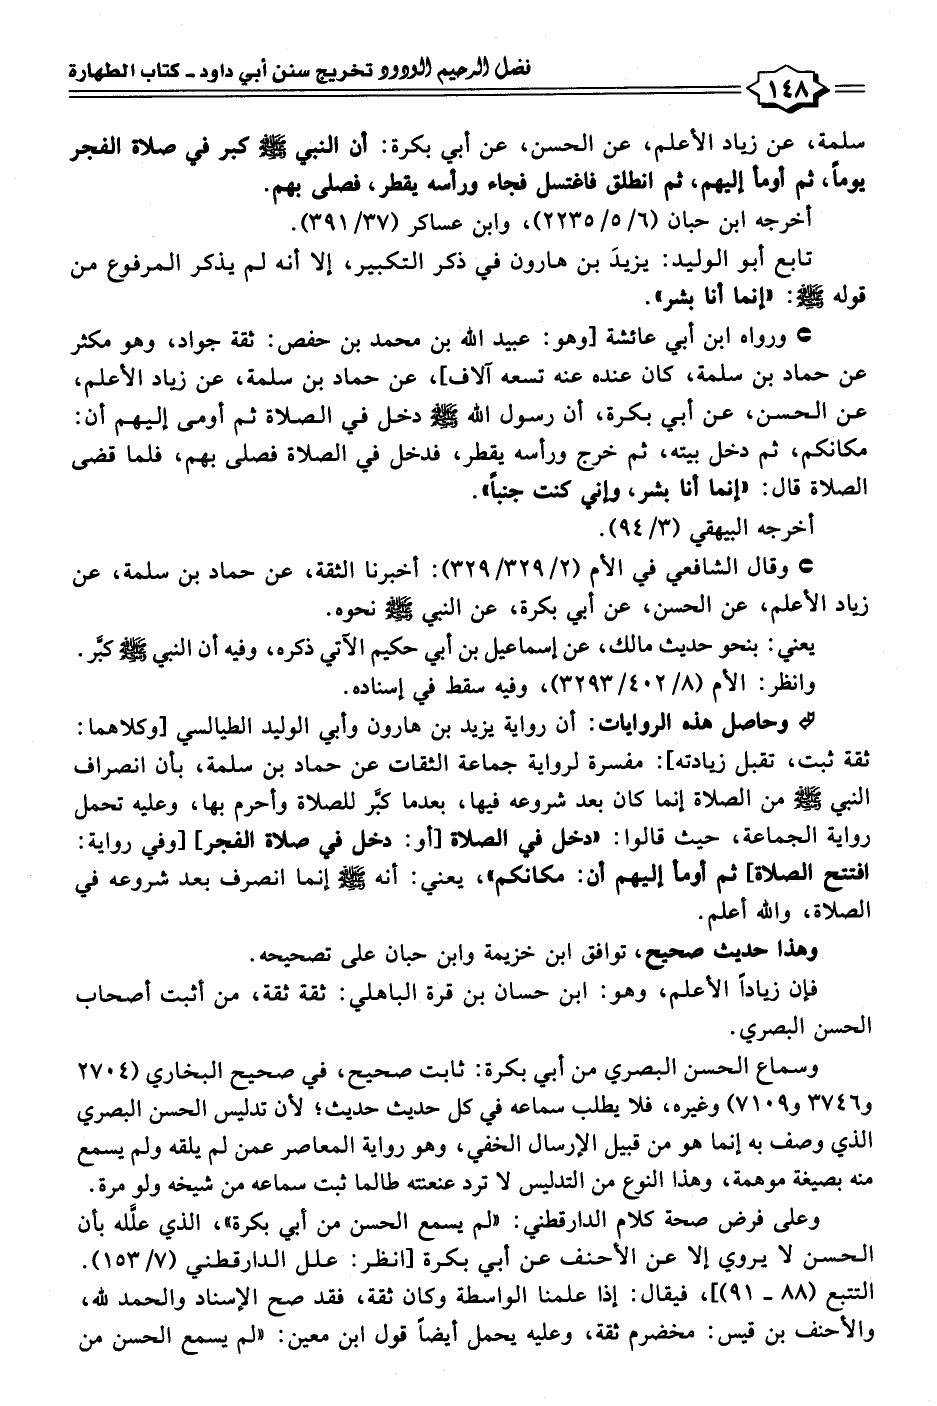 ١٤٨ فضل الرحيم الودود تخريج سنن أبي داود - كتاب الطهارة
سلمة، عن زياد الأعلم، عن الحسن، عن أبي بكرة: أن النبي ﷺ كبر في صلاة الفجر
يوماً، ثم أومأ إليهم، ثم انطلق فاغتسل فجاء ورأسه يقطر، فصلى بهم.
أخرجه ابن حبان (٦/٥/٢٢٣٥)، وابن عساكر (٣٧/٣٩١).
تابع أبو الوليد: يزيدَ بن هارون في ذكر التكبير، إلا أنه لم يذكر المرفوع من
قوله ﷺ: «إنما أنا بشر».
ورواه ابن أبي عائشة [وهو: عبيد الله بن محمد بن حفص: ثقة جواد، وهو مكثر
عن حماد بن سلمة، كان عنده عنه تسعه آلاف]، عن حماد بن سلمة، عن زياد الأعلم،
عن الحسن، عن أبي بكرة، أن رسول الله ﷺ دخل في الصلاة ثم أومى إليهم أن:
مكانكم، ثم دخل بيته، ثم خرج ورأسه يقطر، فدخل في الصلاة فصلى بهم، فلما قضى
الصلاة قال: «إنما أنا بشر، وإني كنت جنباً».
أخرجه البيهقي (٣/٩٤).
وقال الشافعي في الأم (٢/٣٢٩/٣٢٩): أخبرنا الثقة، عن حماد بن سلمة، عن
زياد الأعلم، عن الحسن، عن أبي بكرة، عن النبي ﷺ نحوه.
يعني: بنحو حديث مالك، عن إسماعيل بن أبي حكيم الآتي ذكره، وفيه أن النبي ﷺ كبَّر.
وانظر: الأم (٨/٤٠٢/٣٢٩٣)، وفيه سقط في إسناده.
وحاصل هذه الروايات: أن رواية يزيد بن هارون وأبي الوليد الطيالسي [وكلاهما:
ثقة ثبت، تقبل زيادته]: مفسرة لرواية جماعة الثقات عن حماد بن سلمة، بأن انصراف
النبي ﷺ من الصلاة إنما كان بعد شروعه فيها، بعدما كبَّر للصلاة وأحرم بها، وعليه تحمل
رواية الجماعة، حيث قالوا: «دخل في الصلاة [أو: دخل في صلاة الفجر] [وفي رواية:
افتتح الصلاة] ثم أومأ إليهم أن: مكانكم»، يعني: أنه ﷺ إنما انصرف بعد شروعه في
الصلاة، والله أعلم.
وهذا حديث صحيح، توافق ابن خزيمة وابن حبان على تصحيحه.
فإن زياداً الأعلم، وهو: ابن حسان بن قرة الباهلي: ثقة ثقة، من أثبت أصحاب
الحسن البصري.
وسماع الحسن البصري من أبي بكرة: ثابت صحيح، في صحيح البخاري (٢٧٠٤
و٣٧٤٦ و٧١٠٩) وغيره، فلا يطلب سماعه في كل حديث حديث؛ لأن تدليس الحسن البصري
الذي وصف به إنما هو من قبيل الإرسال الخفي، وهو رواية المعاصر عمن لم يلقه ولم يسمع
منه بصيغة موهمة، وهذا النوع من التدليس لا ترد عنعنته طالما ثبت سماعه من شيخه ولو مرة.
وعلى فرض صحة كلام الدارقطني: «لم يسمع الحسن من أبي بكرة»، الذي علَّله بأن
الحسن لا يروي إلا عن الأحنف عن أبي بكرة [انظر: علل الدارقطني (٧/١٥٣).
التتبع (٨٨ - ٩١)]، فيقال: إذا علمنا الواسطة وكان ثقة، فقد صح الإسناد والحمد لله،
والأحنف بن قيس: مخضرم ثقة، وعليه يحمل أيضاً قول ابن معين: «لم يسمع الحسن من